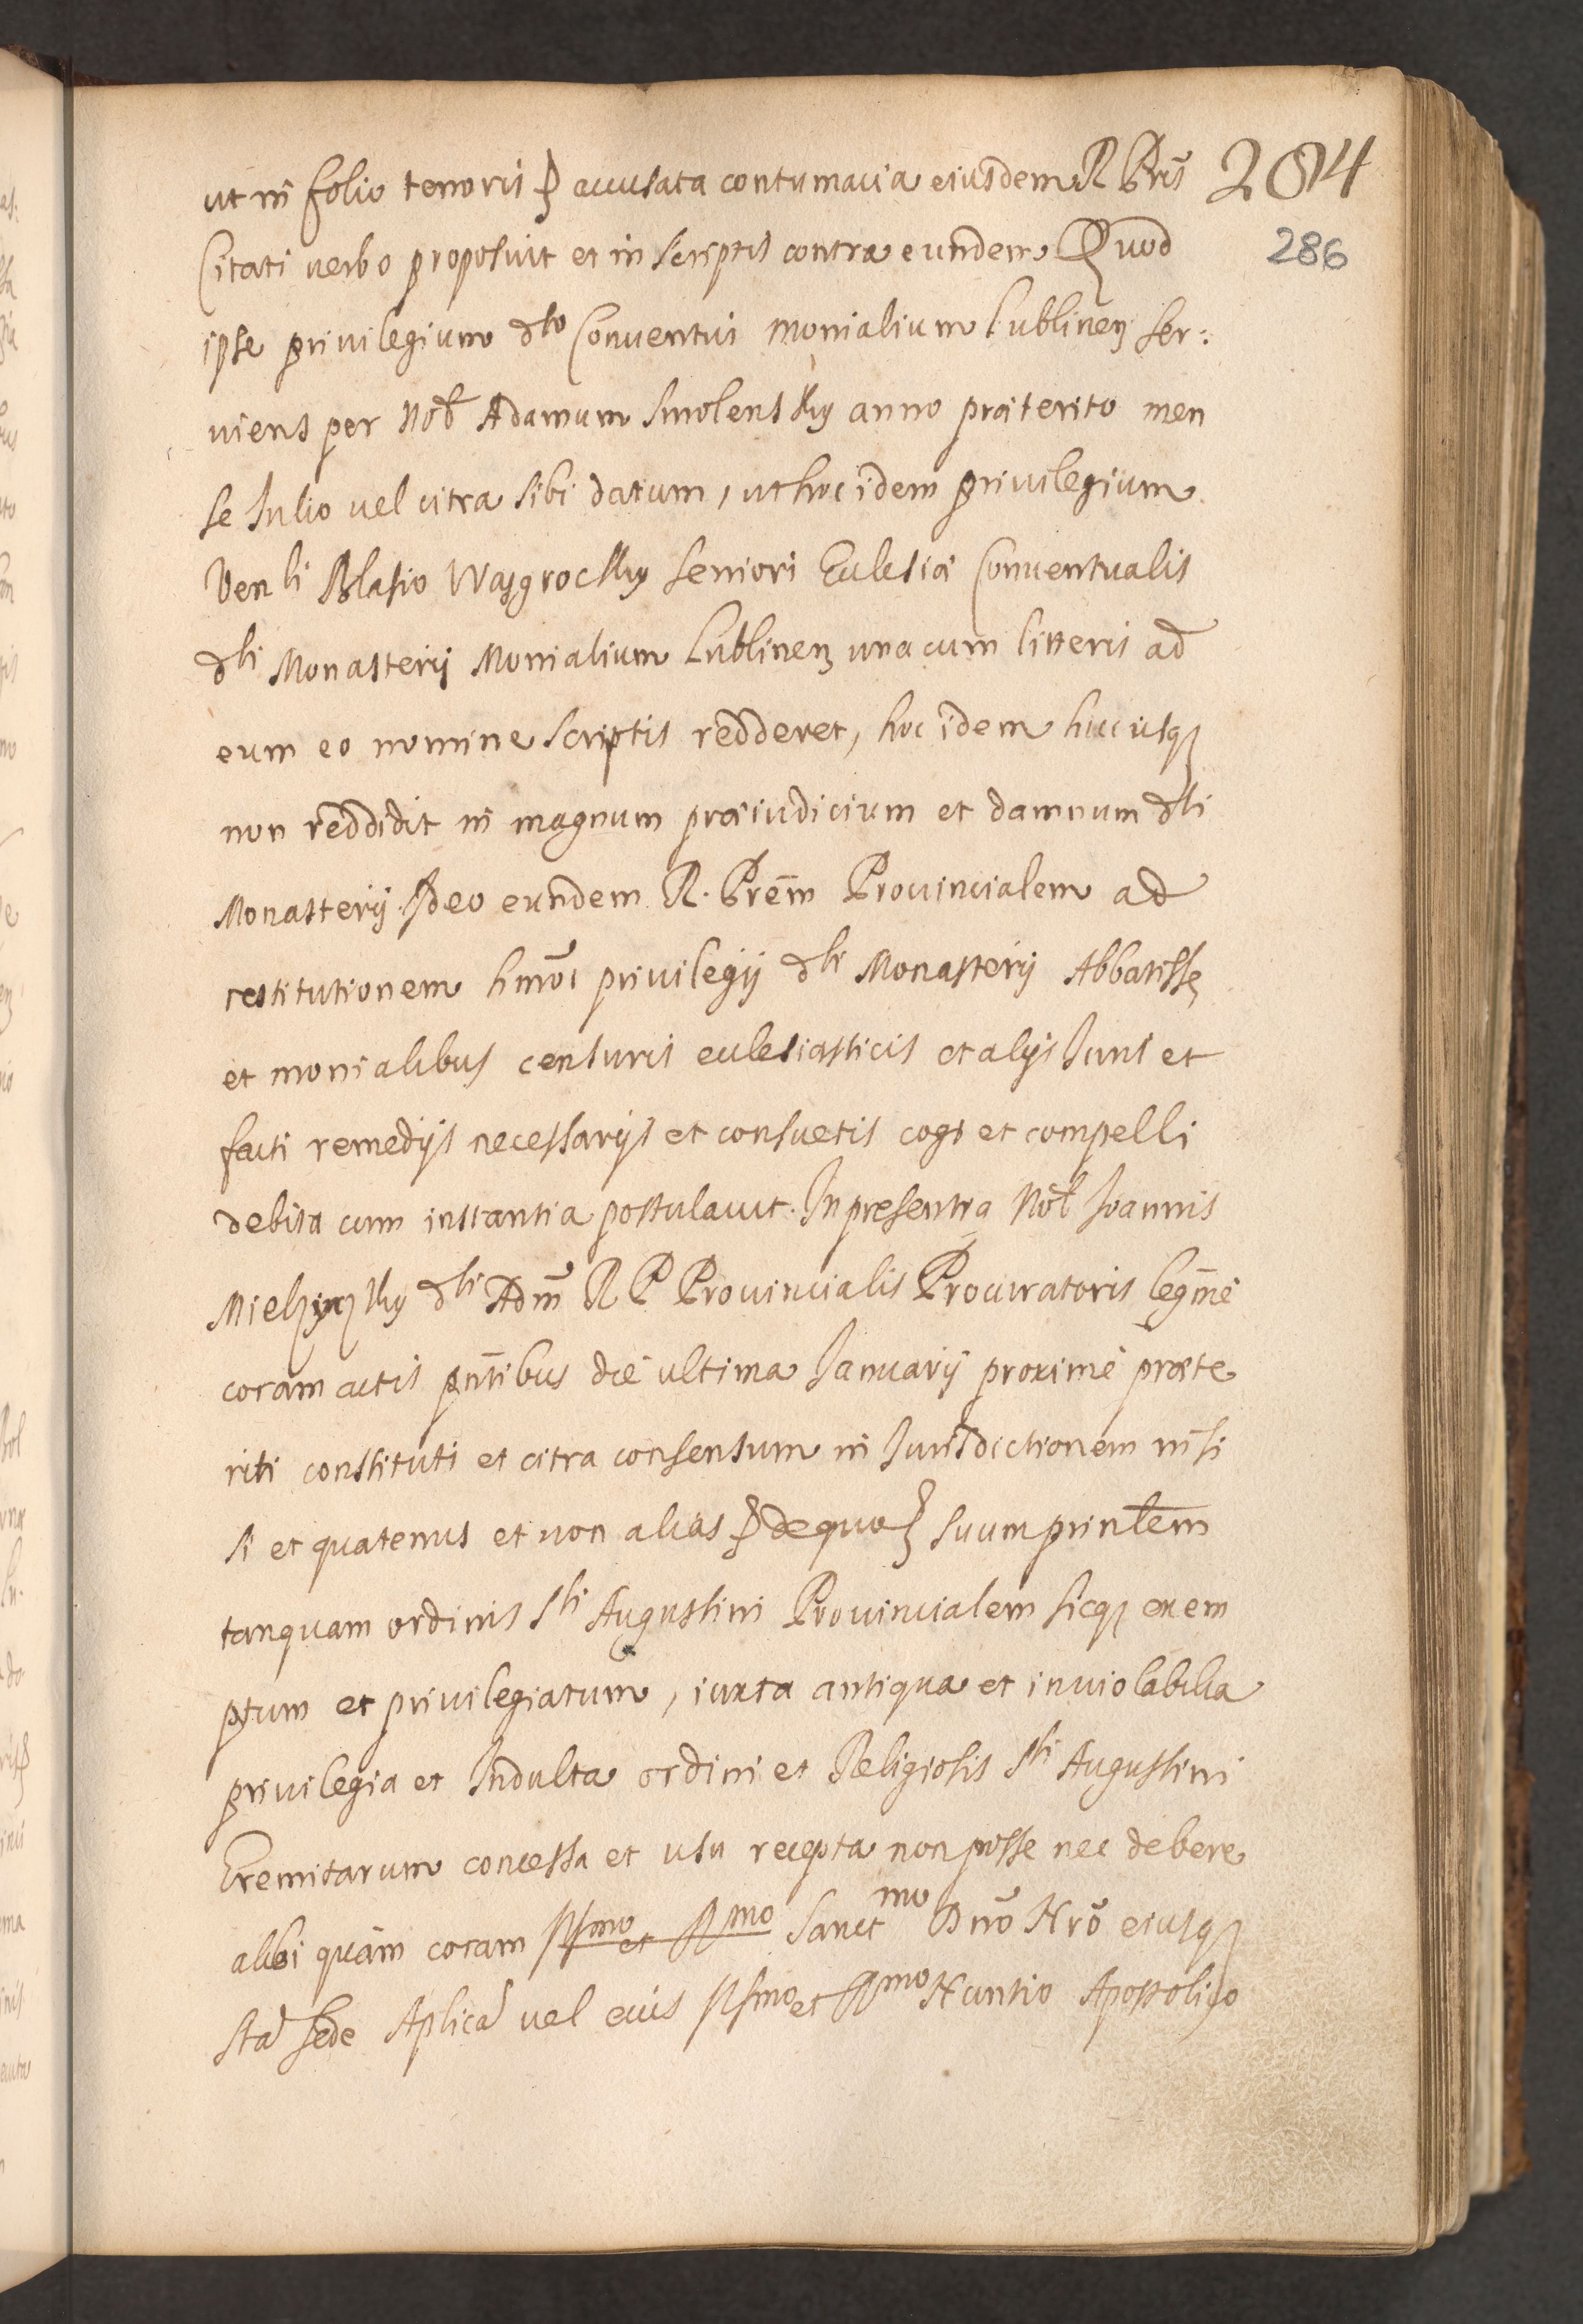 ut in folio tenoris ꝑ accusata contumacia eiusdem R Pris̄ 284
286
Citati verbo proposuit et in scriptis contra eundem Quod
ipse privilegium dto Conventui Monialium Lublinen ser:
viens per Nob Adamum Smolensky anno præterito men
se Julio vel citra sibi datum, ut hoc idem privilegium
Ven li Blasio Wazgrocky Seniori Ecclesiæ Conventualis
dti Monasterij Monialium Lublinen una cum litteris ad
eum eo nomine scriptis redderet, hoc idem hucusq
non reddidit in magnum præiudicium et damnum dti
Monasterij. Ideo eundem R. Prēm Provincialem ad
restitutionem hmōi privilegij dti Monasterij Abbatissę
et monialibus censuris ecclesiasticis et alijs Juris et
facti remedijs necessarijs et consuetis cogi et compelli
debita cum instantia postulavit. In presentia Nob Joannis
dti Adm̄ R P Provincialis Procuratoris legm̄e
coram actis pn̄tibus die ultima Januarij proxime præte
riti constituti et citra consensum in Jurisdictionem nisi
si et quatenus et non alias ꝑ de quo ꝑ suum prin̄lem
tanquam ordinis Sti Augustini Provincialem sicq exem
ptum et privilegiatum, iuxta antiqua et inviolabilia
privilegia et Indulta ordini et Religiosis Sti Augustini
Eremitarum concessa et usu recepta non posse nec debere
alibi quàm coram Illmo et Rmo Sanctmo Dnō Nrō eiusq
Sta Sede Aplica vel eius Illmo et Rmo Nuntio Apostolico